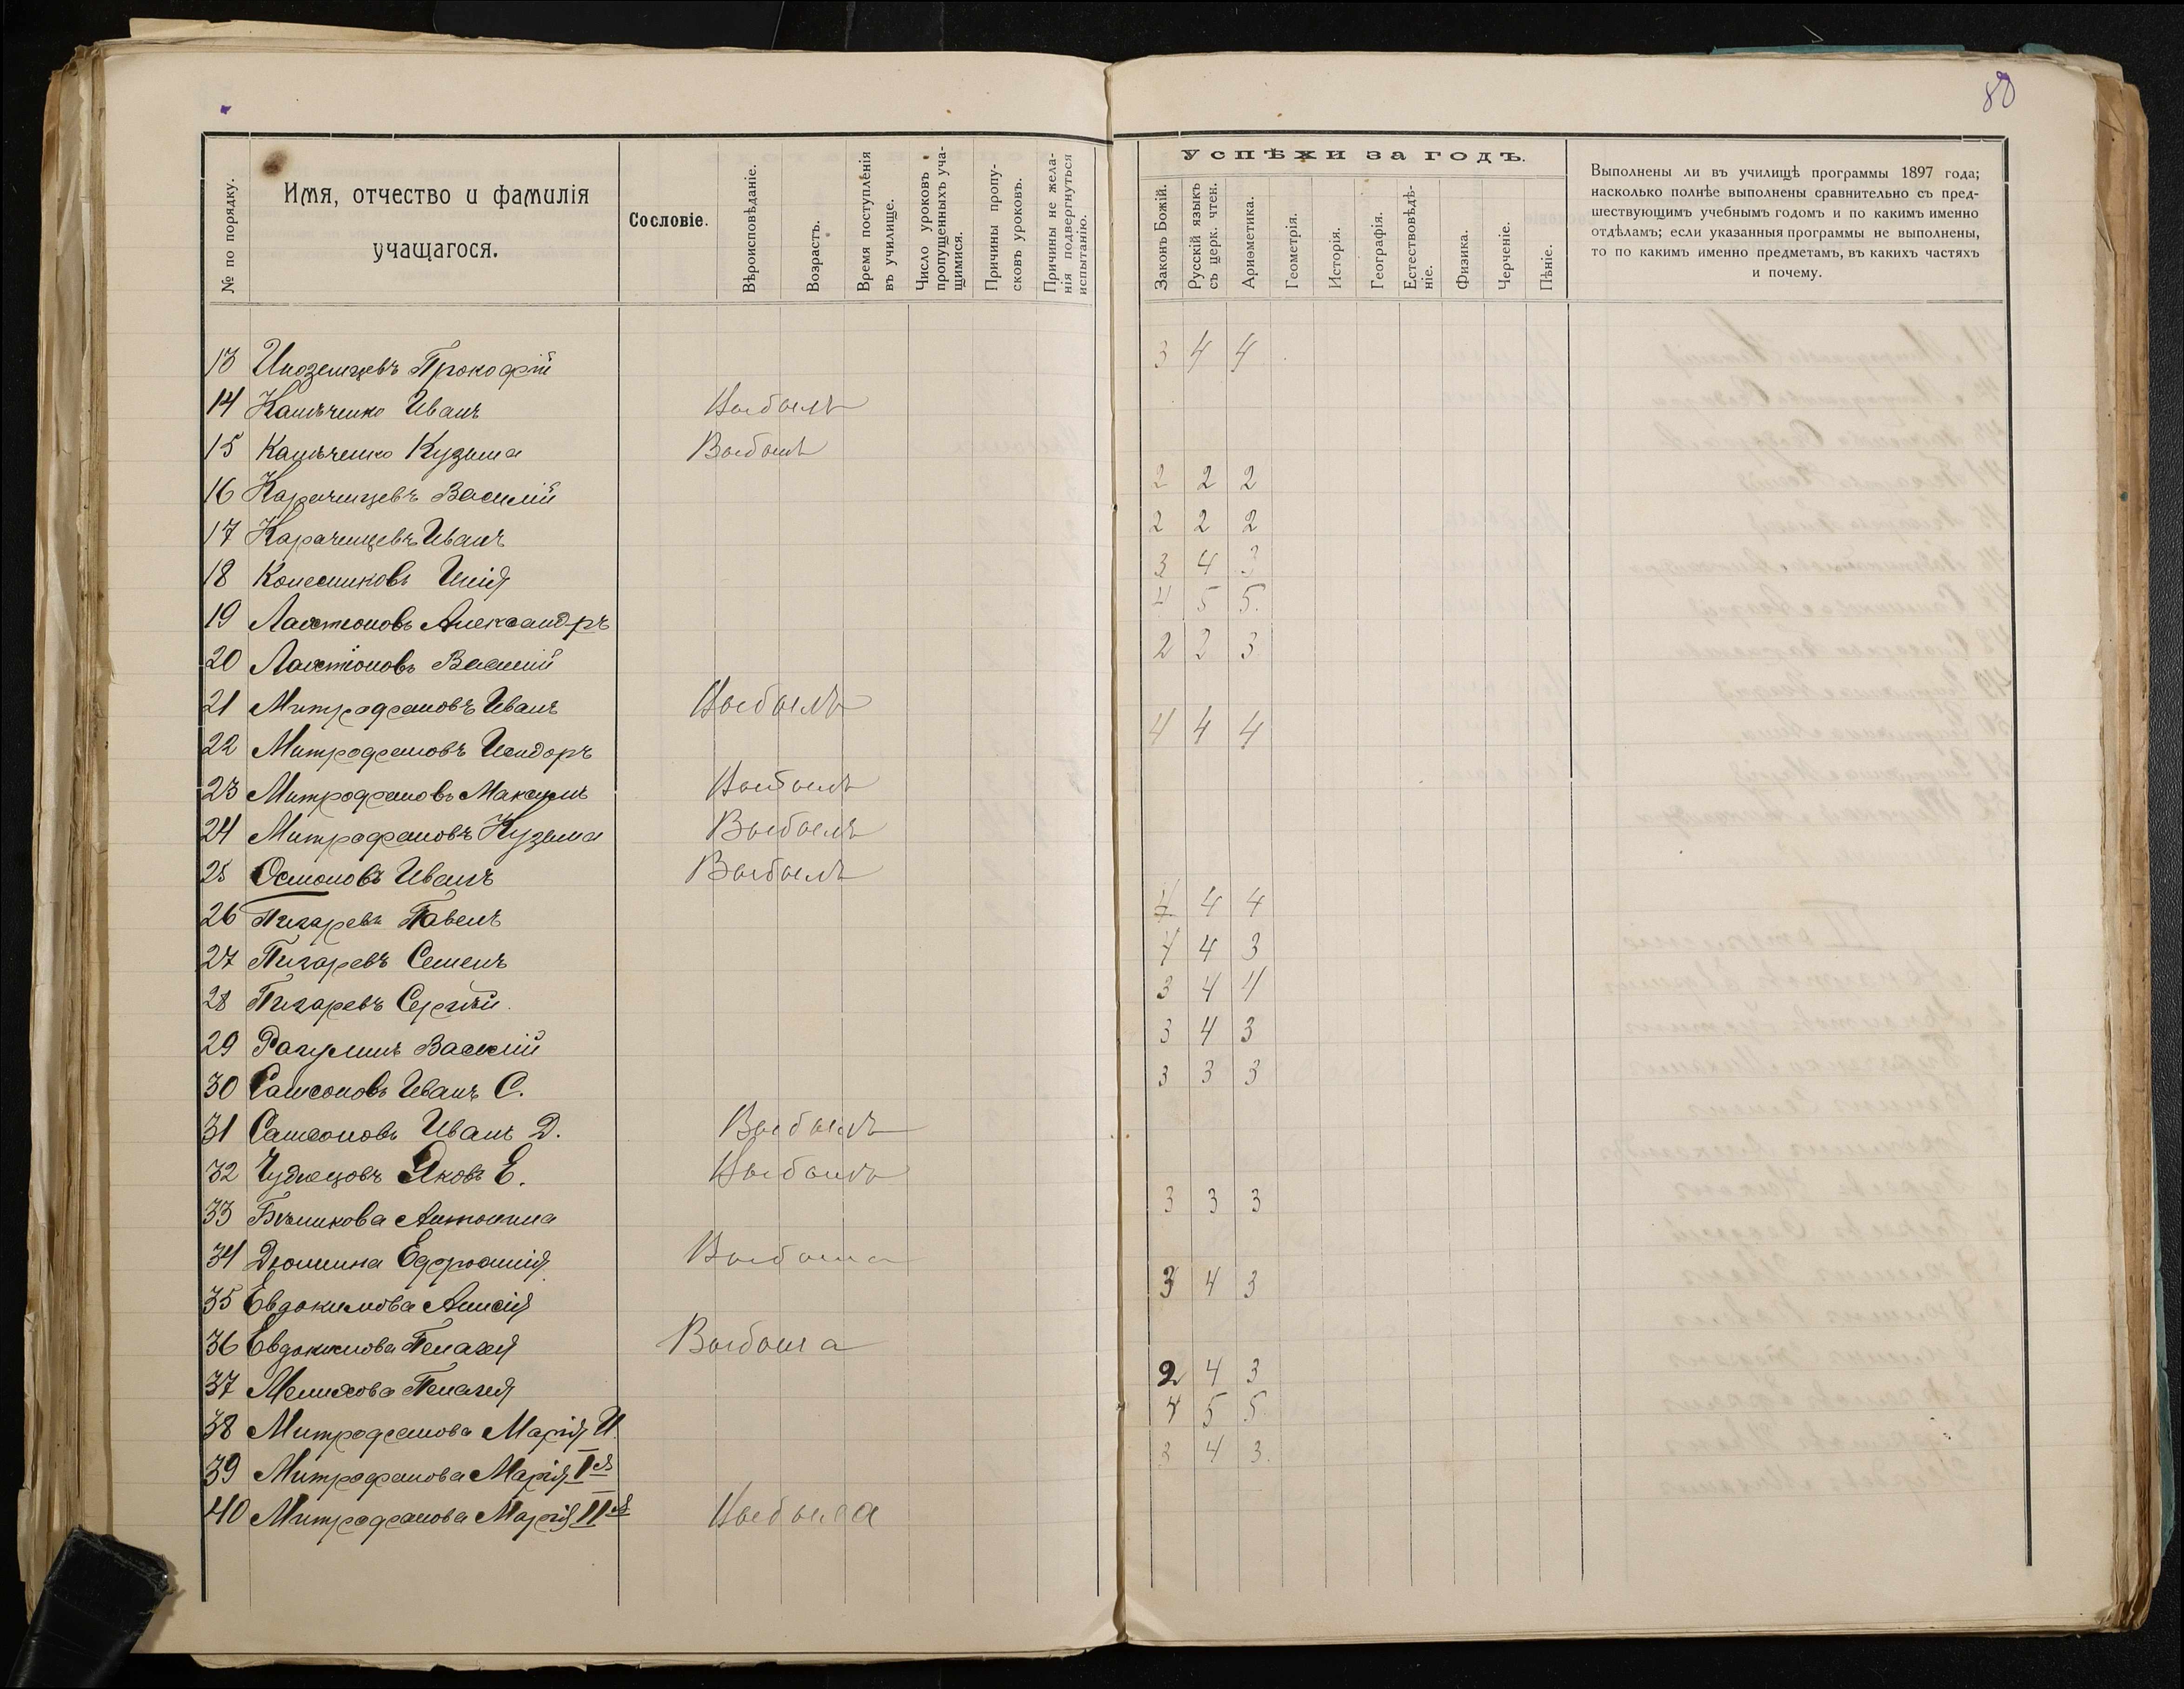 80
№ по порядку.
Имя, отчество и фамилія
учащагося.
Сословіе.
Вѣроисповѣданіе.
Возрастъ.
Время поступленія
въ училище.
Число уроковъ
пропущенныхъ уча-
щимися.
Причины пропу-
сковъ уроковъ.
Причины не жела-
нія подвергнуться
испытанію.
Успѣхи за годъ.
Законъ Божій.
Русскій языкъ
съ церк. чтен.
Ариѳметика.
Геометрія.
Исторія.
Географія.
Естествовѣдѣ-
ніе.
Физика.
Черченіе.
Пѣніе.
Выполнены ли въ училищѣ программы 1897 года;
насколько полнѣе выполнены сравнительно съ пред-
шествующимъ учебнымъ годомъ и по какимъ именно
отдѣламъ; если указанныя программы не выполнены,
то по какимъ именно предметамъ, въ какихъ частяхъ
и почему.
13 Иноземцевъ Прокофій 3 4 4
14 Иванъ Выбылъ
15 Кузьма Выбылъ
16 Карачинцевъ Василій 2 2 2
17 Карачинцевъ Иванъ 2 2 2
18 Колесниковъ Илія 3 4 3
19 Лактіоновъ Александръ 4 5 5.
20 Лактіоновъ Василій 2 2 3
21 Митрофановъ Иванъ Выбылъ
22 Митрофановъ Исидоръ 4 4 4
23 Митрофановъ Максимъ Выбылъ
24 Митрофановъ Кузьма Выбылъ
25 Иванъ Выбылъ
26 Пигаревъ Павелъ 4 4 4
27 Пигаревъ Семенъ 4 4 3
28 Пигаревъ Сергѣй. 3 4 4
29 Рагулинъ Василій 3 4 3
30 Самсоновъ Иванъ С. 3 3 3
31 Самсоновъ Иванъ Д. Выбылъ
32 Яковъ Е. Выбылъ
33 Бѣликова Антонина 3 3 3
34 Дюмина Ефросинія Выбыла
35 Евдокимова Анисія 3 4 3
36 Евдокимова Пелагея Выбыла
37 Мелихова Пелагея 2 4 3
38 Митрофанова Марія И. 4 5 5.
39 Митрофанова Марія Iая 3 4 3.
40 Митрофанова Марія IIая Выбыла